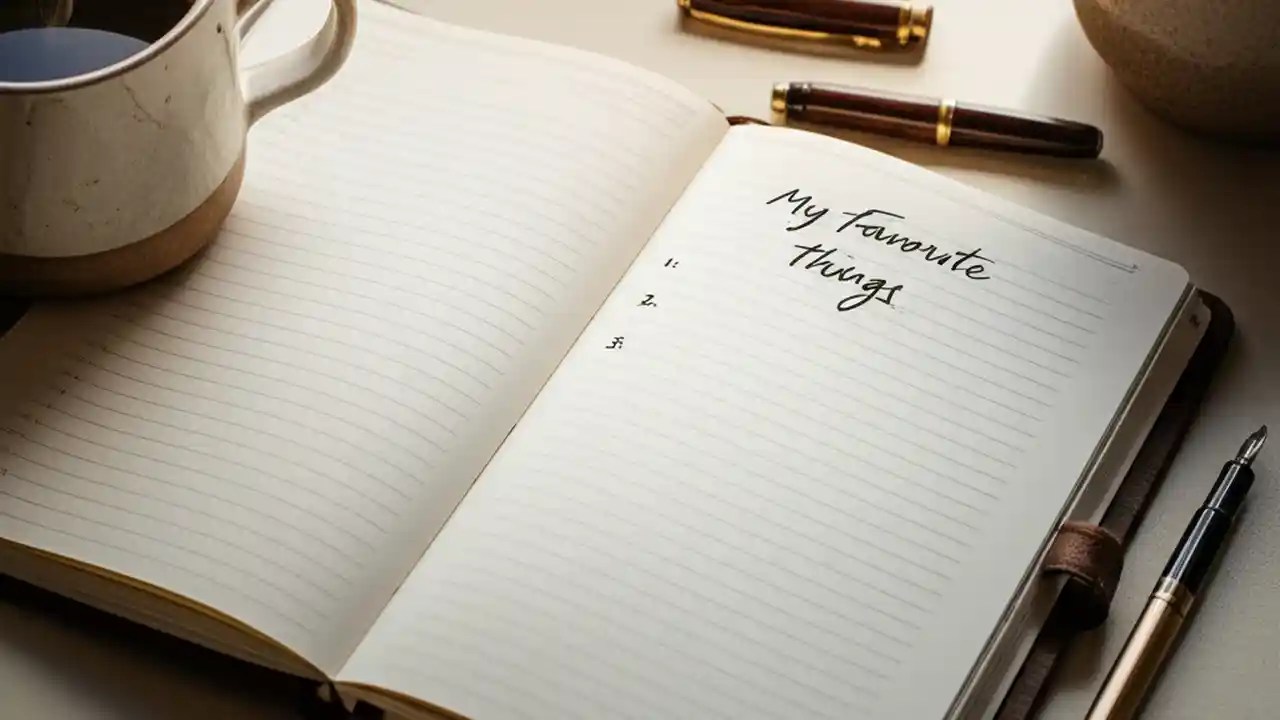 My Favorite
Things
1.
2.
3.